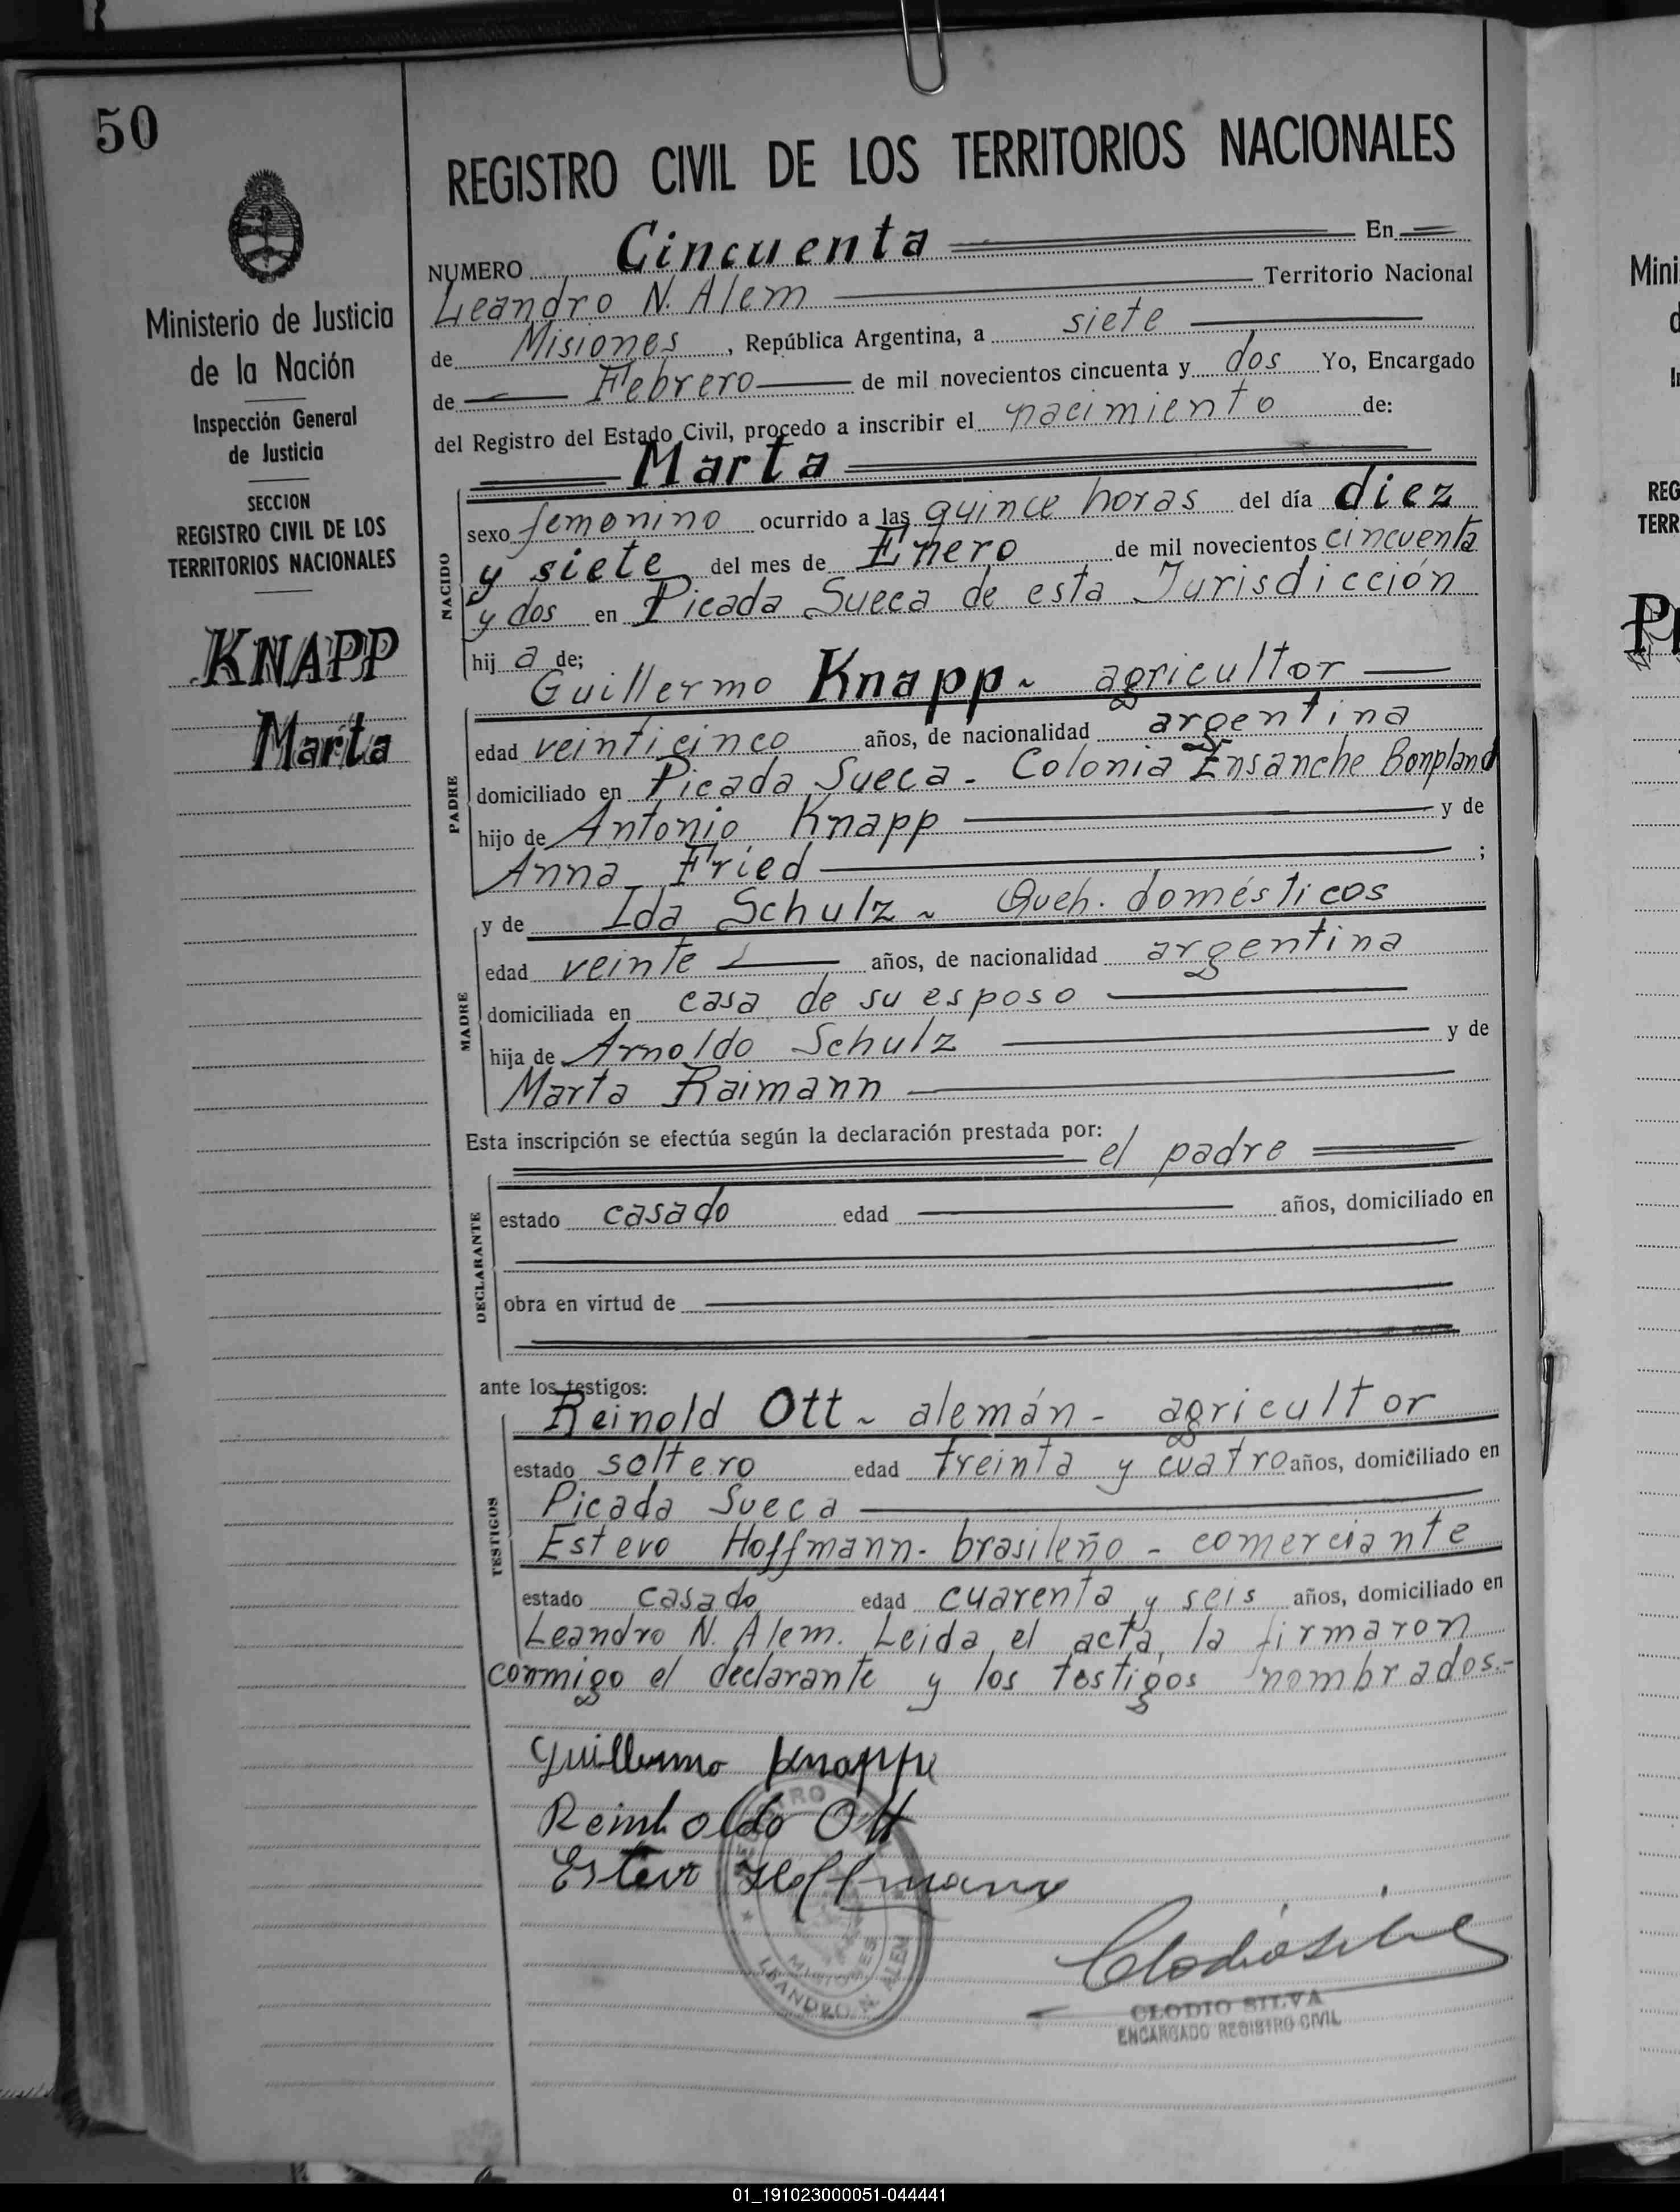 50
Ministerio de Justicia
de la Nación
Inspección General
de Justicia
SECCION
REGISTRO CIVIL DE LOS
TERRITORIOS NACIONALES
KNAPP
Marta
REGISTRO CIVIL DE LOS TERRITORIOS NACIONALES
NUMERO Cincuenta En
Leandro N. Alem Territorio Nacional
de Misiones, República Argentina, a siete
de Febrero de mil novecientos cincuenta y dos Yo, Encargado
del Registro del Estado Civil, procedo a inscribir el nacimiento de:
Marta
NACIDO
sexo femenino ocurrido a las quince horas del día diez
y siete del mes de Enero de mil novecientos cincuenta
y dos en Picada Sueca de esta Jurisdicción
hij a de;
Guillermo Knapp - agricultor
PADRE
edad veinticinco años, de nacionalidad argentina
domiciliado en Picada Sueca - Colonia Ensanche Bonpland
hijo de Antonio Knapp y de
Anna Fried ;
y de Ida Schulz - Queh. domésticos
MADRE
edad veinte años, de nacionalidad argentina
domiciliada en casa de su esposo
hija de Arnoldo Schulz y de
Marta Raimann
Esta inscripción se efectúa según la declaración prestada por:
el padre
DECLARANTE
estado casado edad años, domiciliado en
obra en virtud de
ante los testigos:
Reinold Ott - alemán - agricultor
TESTIGOS
estado soltero edad treinta y cuatro años, domiciliado en
Picada Sueca
Estevo Hoffmann - brasileño - comerciante
estado casado edad cuarenta y seis años, domiciliado en
Leandro N. Alem. Leida el acta, la firmaron
conmigo el declarante y los testigos nombrados.-
Guillermo Knapp
Reinholdo Ott
Estevo Hoffmann
MISIONES
LEANDRO N. ALEM
Clodio Silva
CLODIO SILVA
ENCARGADO REGISTRO CIVIL
Mini
REG
TERR
01_191023000051-044441